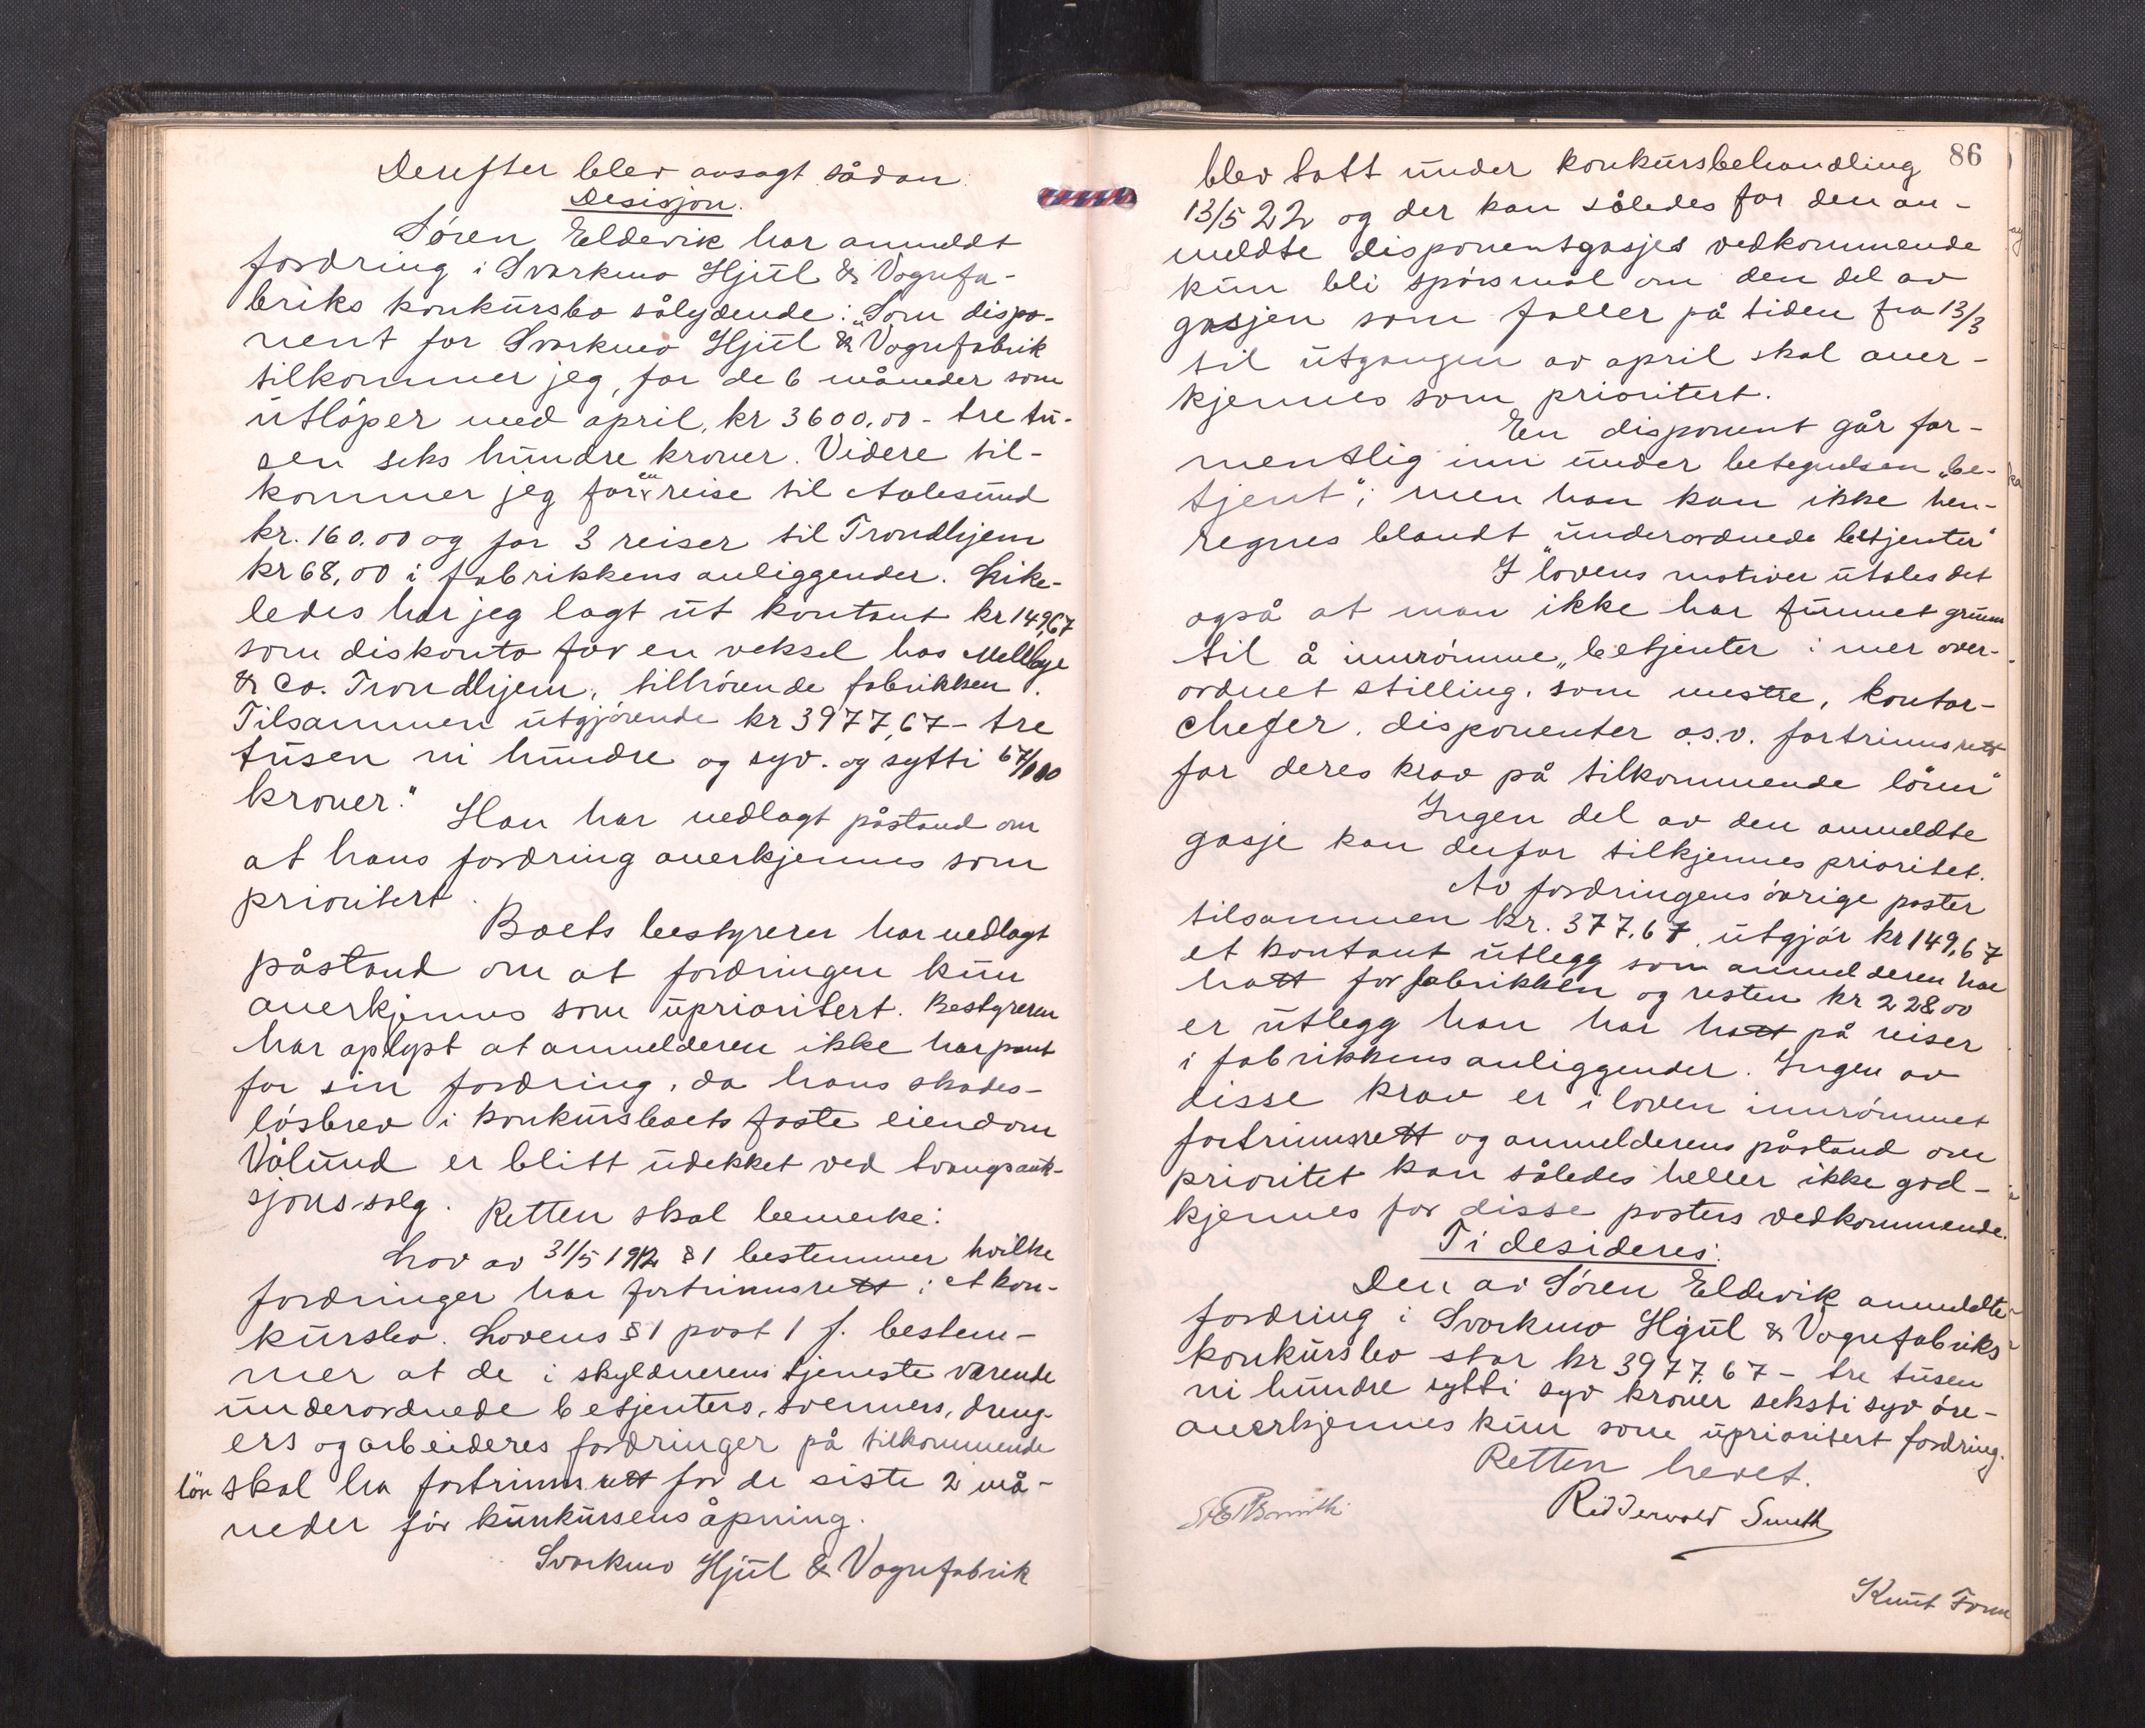 Derefter blev avsagt sådan
Desisjon.
Søren Eldevik har anmeldt
fordring i Svorkmo Hjul & Vognfa-
briks konkursbo sålydende: "Som dispo-
nent for Svorkmo Hjul & Vognfabrik
tilkommer jeg, for de 6 måneder som
utløper med april, kr 3600,00 - tre tu-
sen seks hundre kroner. Videre til-
kommer jeg for en reise til Aalesund
kr. 160.00 og for 3 reiser til Trondhjem
kr 68,00 i fabrikkens anliggender. Like-
ledes har jeg lagt ut kontant kr 149,67
som diskonto for en veksel hos Mellbye
& Co. Trondhjem, tilhørende fabrikken.
Tilsammen utgjørende kr 3977,67 - tre
tusen ni hundre og syv. og sytti 67/100
kroner."
Han har nedlagt påstand om
at hans fordring anerkjennes som
prioritert.
Boets bestyrer har nedlagt
påstand om at fordringen kun
anerkjennes som uprioritert. Bestyreren
har oplyst at anmelderen ikke har pant
for sin fordring, da hans skades-
løsbrev i konkursboets faste eiendom
Vålund er blitt udekket ved tvangsauk-
sjonssalg.
Retten skal bemerke:
Lov av 31/5 1912 § 1 bestemmer hvilke
fordringer har fortrinnsrett i et kon-
kursbo. Lovens § 1 post 1 f. bestem-
mer at de i skyldnerens tjeneste værende
underordnede betjenters, svenners, dreng-
ers og arbeideres fordringer på tilkommende
løn skal ha fortrinnsrett for de siste 2 må-
neder før kunkursens åpning.
Svorkmo Hjul & Vognfabrik
86
blev tatt under konkursbehandling
13/5 22 og der kan således for den an-
meldte disponentgasjes vedkommende
kun bli spørsmål om den del av
gasjen som faller på tiden fra 13/3
til utgangen av april skal aner-
kjennes som prioritert.
En disponent går for-
mentlig inn under betegnelsen "be-
tjent"; men han kan ikke hen-
regnes blandt "underordnede betjenter"
I lovens motiver utales det
også at man ikke har funnet grunn
til å innrømme "betjenter i mer over-
ordnet stilling, som mestre, kontor-
chefer, disponenter o.s.v. fortrinnsrett
for deres krav på tilkommende lønn"
Ingen del av den anmeldte
gasje kan derfor tilkjennes prioritet.
Av fordringens øvrige poster
tilsammen kr. 377.67, utgjør kr 149,67
et kontant utlegg som anmelderen har
hatt for fabrikken og resten kr 228,00
er utlegg han har hatt på reiser
i fabrikkens anliggender. Ingen av
disse krav er i loven innrømmet
fortrinnsrett og anmelderens påstand om
prioritet kan således heller ikke god-
kjennes for disse posters vedkommende.
Ti desideres:
Den av Søren Eldevik anmeldte
fordring i Svorkmo Hjul & Vognfabriks
konkursbo stor kr 3977.67 - tre tusen
ni hundre sytti syv kroner seksti syv øre -
anerkjennes kun som uprioritert fordring.
Retten hevet.
Ridderwold Smith
Knut Form